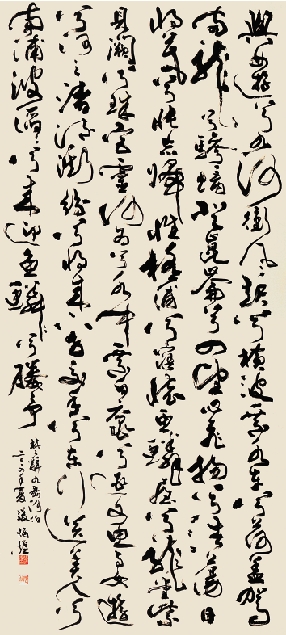 與女遊兮九河衝風起兮橫波乘水車兮荷蓋駕
兩龍兮驂螭登崑崙兮四望心飛揚兮浩蕩日
將暮兮悵忘歸惟極浦兮寤懷魚鱗屋兮龍堂紫
貝闕兮珠宮靈何為兮水中乘白黿兮逐文魚與女遊
兮河之渚流澌紛兮將來下子交手兮東行送美人兮
南浦波滔滔兮來迎魚鱗鱗兮媵予
楚辭九歌河伯